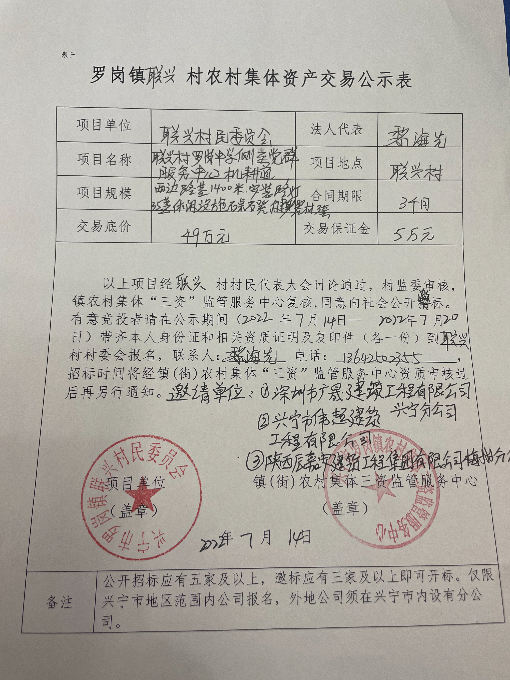 罗岗镇联兴村农村集体资产交易公示表
项目单位 联兴村民委员会 法人代表 海先
项目名称 联兴村罗岗中学侧至党群 项目地点 联兴村
服务中心机耕道
项目规模 西边路基1400米安装路灯 合同期限
交易底价 49万元 交易保证金 5万元
以上项目经联兴村村民代表大会讨论通过，村监委审核，
镇农村集体“三资”监管服务中心复核，同意向社会公开招标。
有意竞投者请在公示期间（2022年7月14日 2022年7月20
日）带齐本人身份证和相关资质证明及复印件（各一份）到联兴
村村委会报名，联系人：海先 电话：13642502355，
招标时间将经镇(街)农村集体“三资”监管服务中心资质审核过
后再另行通知。邀请单位：①深圳市广晟建筑工程有限公司
兴宁分公司
②兴宁市伟超建筑
工程有限公司
③陕西辰嘉建筑工程集团有限公司梅州分公
项目单位 镇(街)农村集体三资监管服务中心
（盖章） （盖章）
兴宁市罗岗镇联兴村民委员会
2022年7月14日
备注 公开招标应有五家及以上，邀标应有三家及以上即可开标。仅限
兴宁市地区范围内公司报名，外地公司须在兴宁市内设有分公
司。